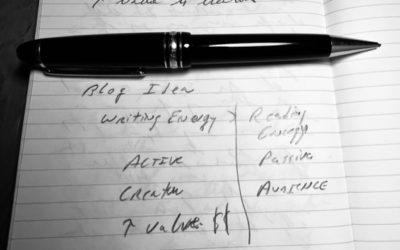 Blog Idea
Writing Energy > Reading Energy
Active Passive
Creator Audience
↑ value $$